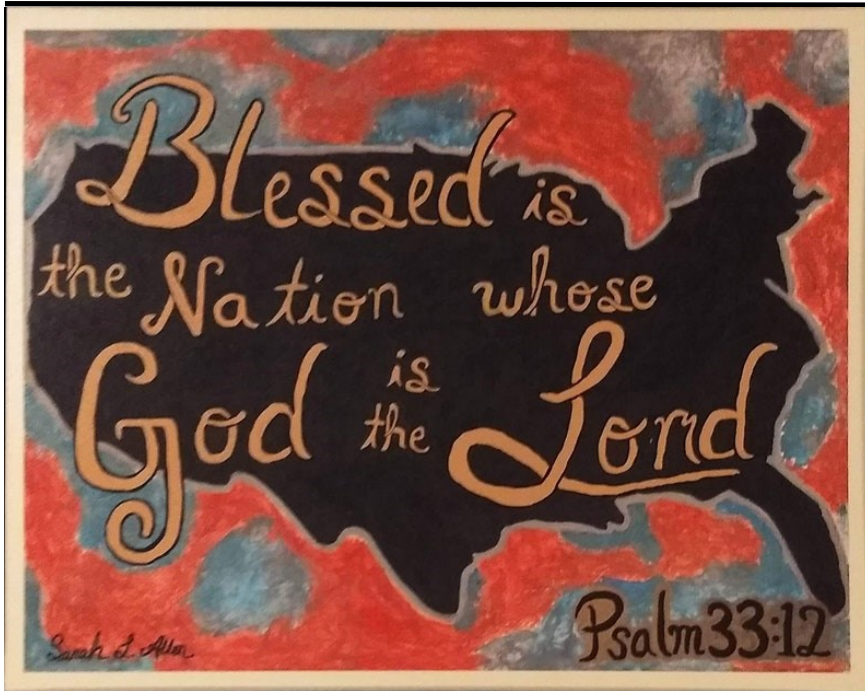 Blessed is
the Nation whose
God is the Lord
Psalm 33:12
Sarah L. Allen